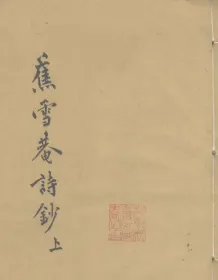 蕉雪菴詩鈔 上